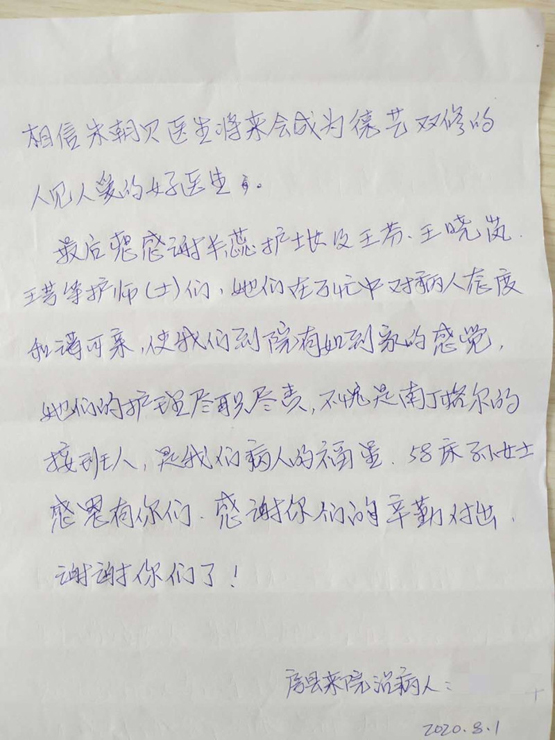 相信朱朝贝医生将来会成为德艺双修的
人见人爱的好医生。
最后要感谢朱蕊护士长及王芬、王晓岚、
王芳等护师(士)们,她们在百忙中对病人态度
和蔼可亲,使我们到院有如到家的感觉,
她们的护理尽职尽责,不愧是南丁格尔的
接班人,是我们病人的福星.58床孙女士
感恩有你们.感谢你们的辛勤付出.
谢谢你们了!
房县来院治病人:
2020.8.1